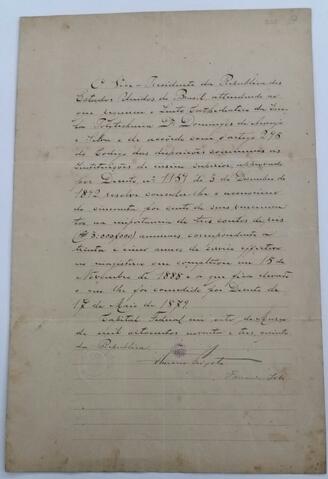 O Vice-Presidente da Republica dos
Estados Unidos do Brasil, attendendo ao
que requereu o Lente Cathedratico da Esco-
la Polytechnica Dr Domingos de Araujo
e Silva e de accordo com o artigo 295
do Codigo das disposições communs ás
Instituições de ensino superior, approvado
por Decreto nº 1159 de 3 de Dezembro de
1892 resolve conceder-lhe o accrescimo
de cincoenta por cento de seus vencimen-
tos na importancia de tres contos de reis
(3.000$000) annuaes, correspondente a
trinta e cinco annos de serviço effectivo
no magisterio em 15 de
Novembro de 1888 e a que fica elevado
o que lhe foi concedido por Decreto de
17 de Maio de 1879.
Capital Federal em oito de Março
de mil oitocentos noventa e tres, quinto
da Republica.
Floriano Peixoto
Fernando Lobo